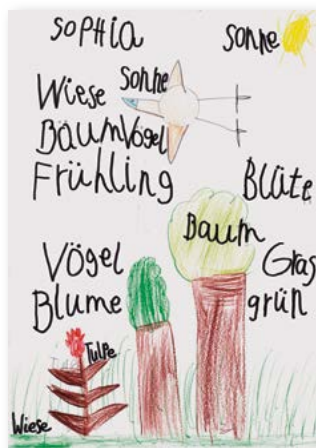 SOPHIA
Sonne
Sonne
Wiese
BäumVögel
Frühling
Blüte
Baum
Vögel
Gras
Blume
grün
Tulpe
Wiese